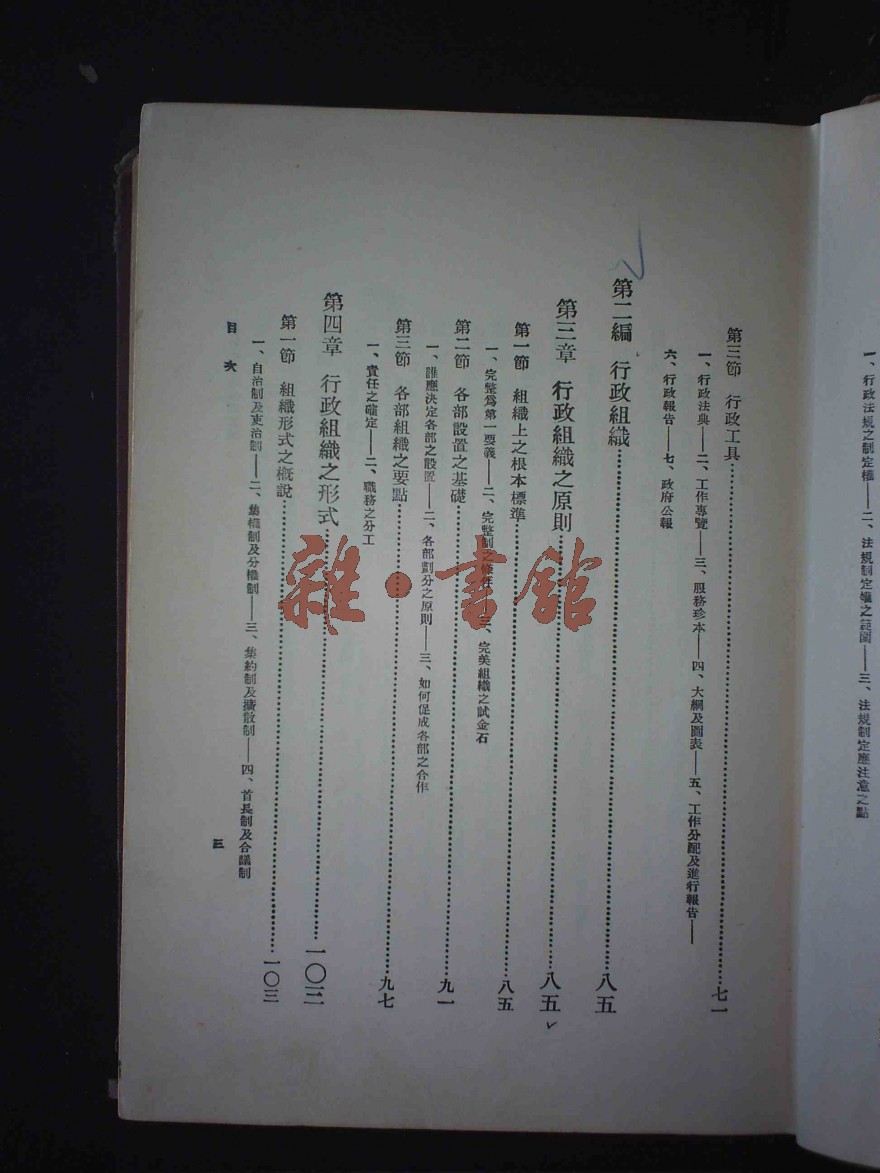 一、行政法規之制定權——二、法規制定權之範圍——三、法規制定應注意之點
第三節　行政工具……七一
一、行政法典——二、工作專覽——三、服務珍本——四、大綱及圖表——五、工作分配及進行報告——
六、行政報告——七、政府公報
第二編　行政組織……八五
第三章　行政組織之原則……八五
第一節　組織上之根本標準……八五
一、完整爲第一要義——二、完整制之條件——三、完美組織之試金石
第二節　各部設置之基礎……九一
一、誰應決定各部之設置——二、各部劃分之原則——三、如何促成各部之合作
第三節　各部組織之要點……九七
一、責任之確定——二、職務之分工
第四章　行政組織之形式……一〇三
第一節　組織形式之概說……一〇三
一、自治制及吏治制——二、集權制及分權制——三、集約制及擴散制——四、首長制及合議制
目次
三
雜·書館